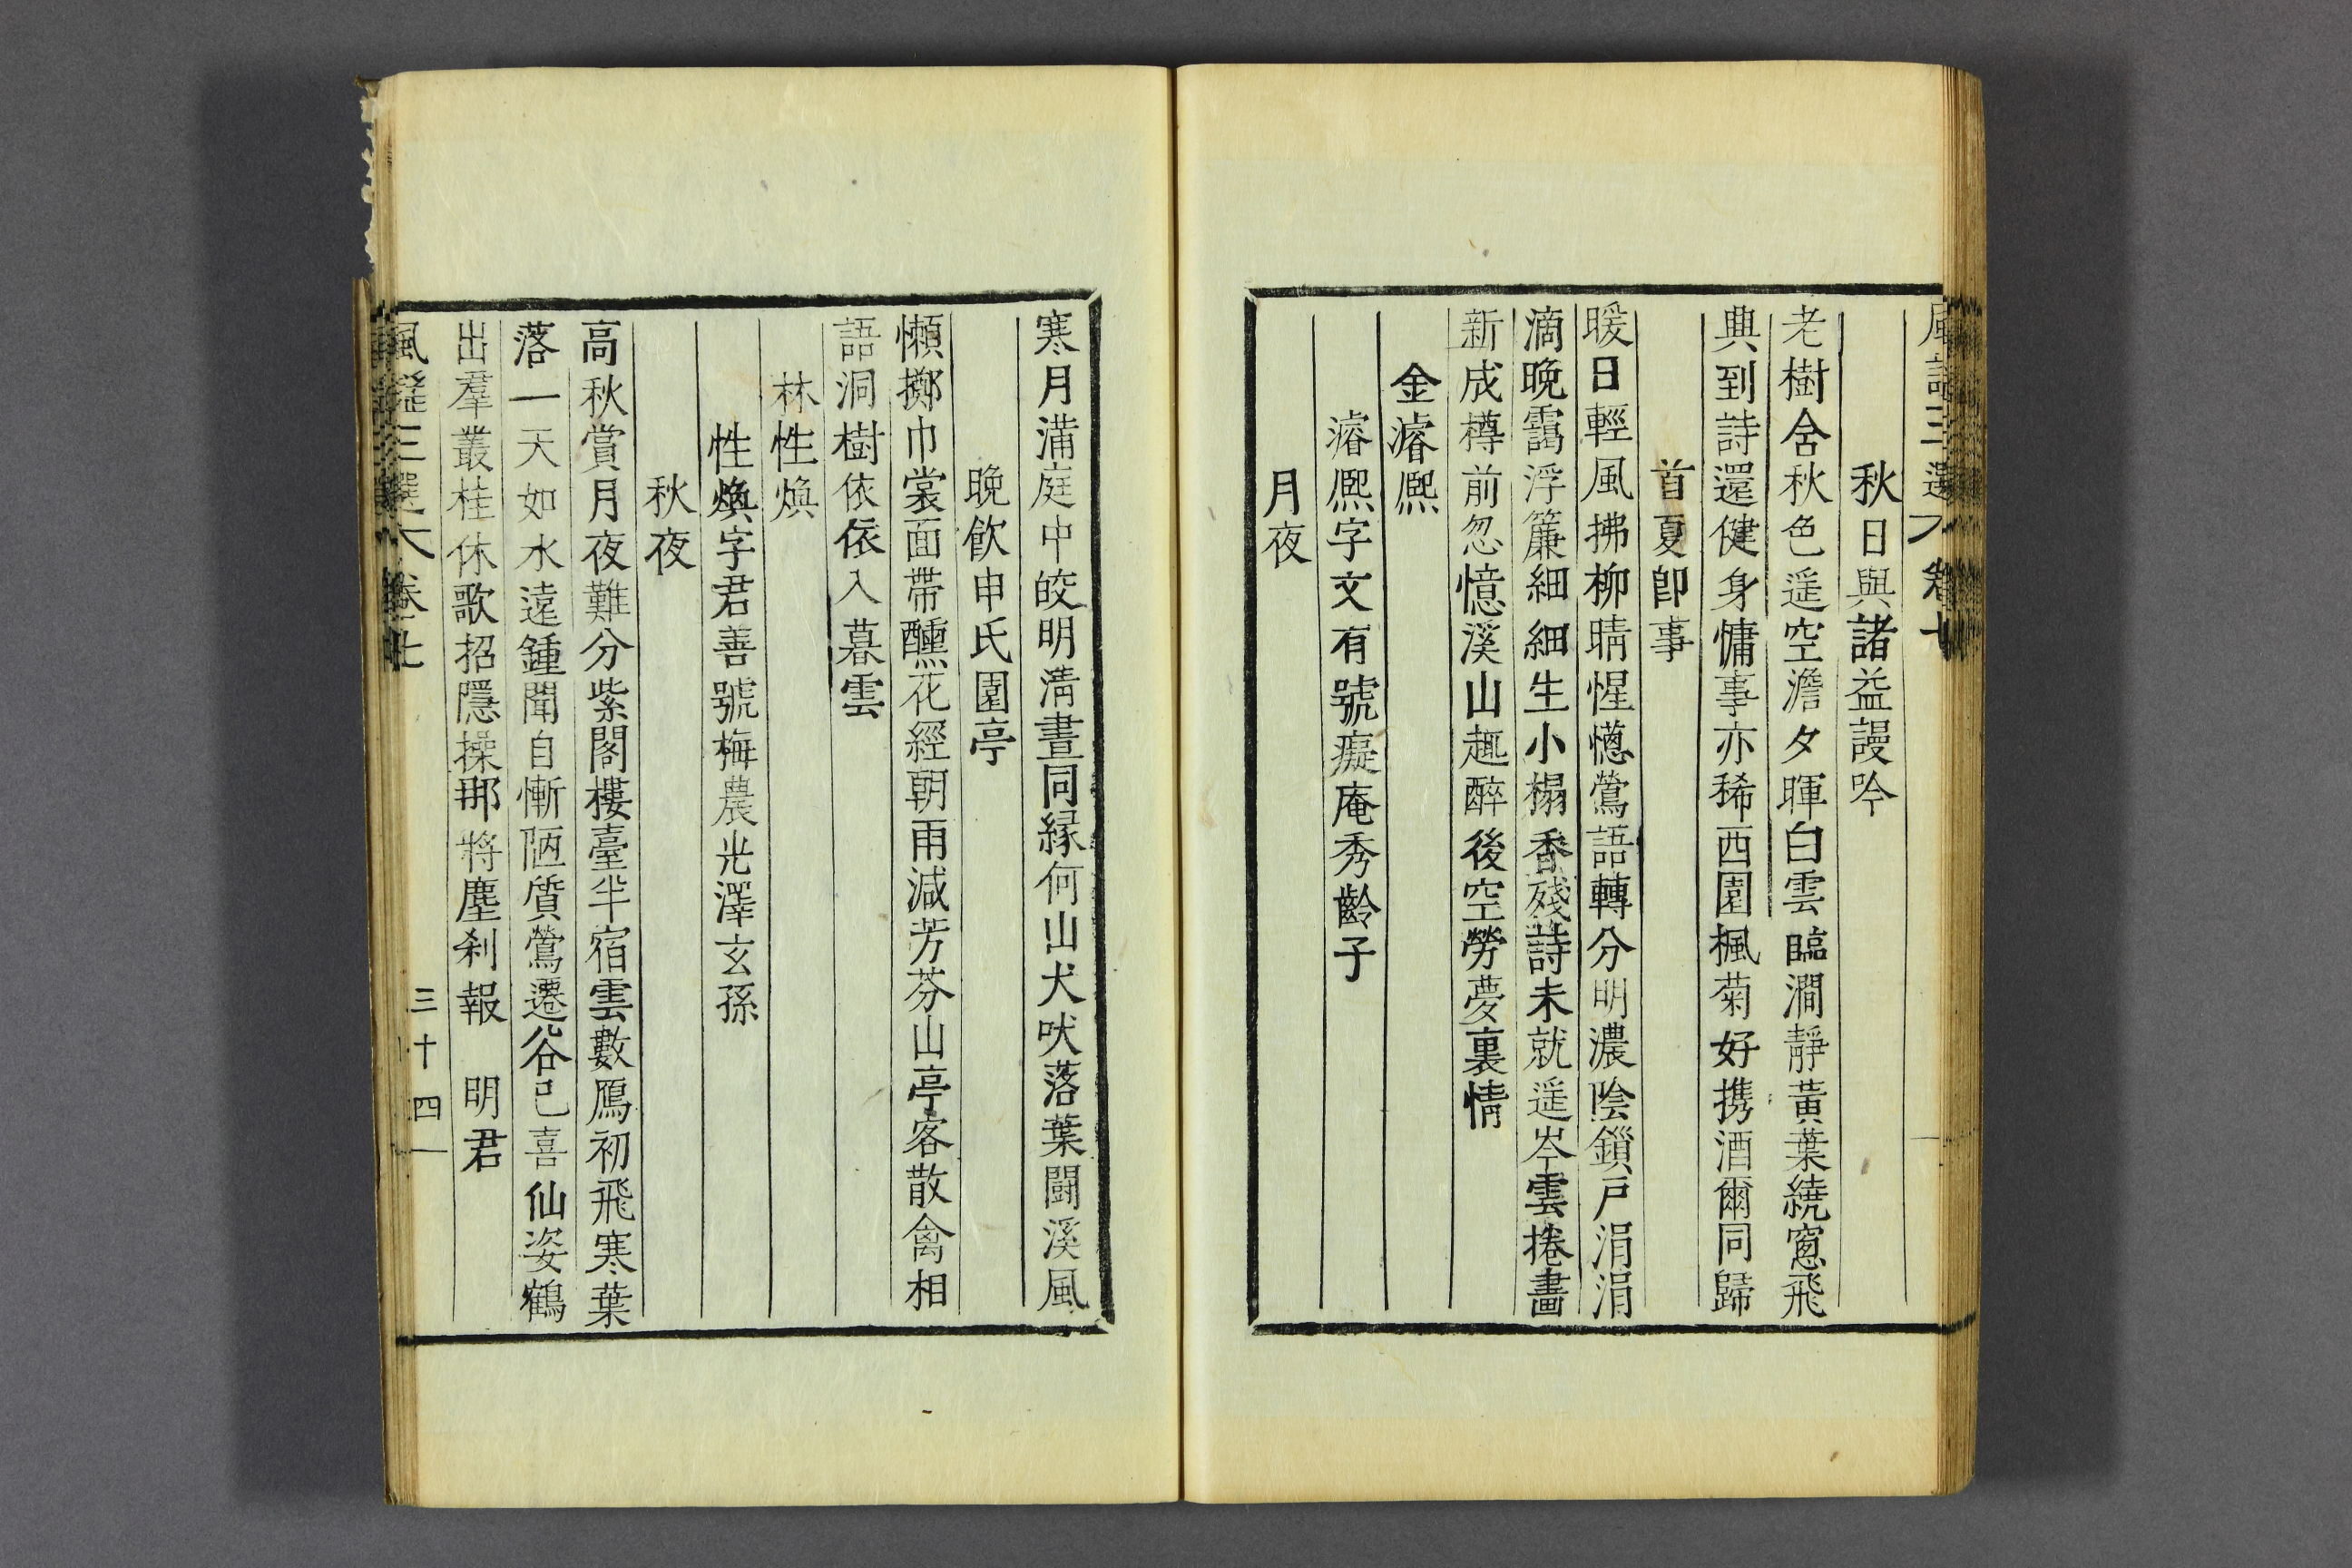 風謠三選 卷七
秋日與諸益謾吟
老樹含秋色遥空澹夕暉白雲臨澗靜黃葉繞窓飛
興到詩還健身慵事亦稀西園楓菊好携酒爾同歸
首夏卽事
暖日輕風拂柳晴惺憁鶯語轉分明濃陰鎖戶涓涓
滴晩靄浮簾細細生小榻香殘詩未就遥岑雲捲畵
新成樽前忽憶溪山趣醉後空勞夢裏情
金濬熈
濬熈字文有號癡庵秀齡子
月夜
寒月滿庭中皎明淸晝同縁何山犬吠落葉鬪溪風
晩飮申氏園亭
懶擲巾裳面帶醺花經朝雨減芳芬山亭客散禽相
語洞樹依依入暮雲
林性煥
性煥字君善號梅農光澤玄孫
秋夜
高秋賞月夜難分紫閣樓臺半宿雲數鴈初飛寒葉
落一天如水遠鍾聞自慚陋質鶯遷谷已喜仙姿鶴
出羣叢桂休歌招隱操那將塵刹報 明君
風謠三選 卷七
三十四